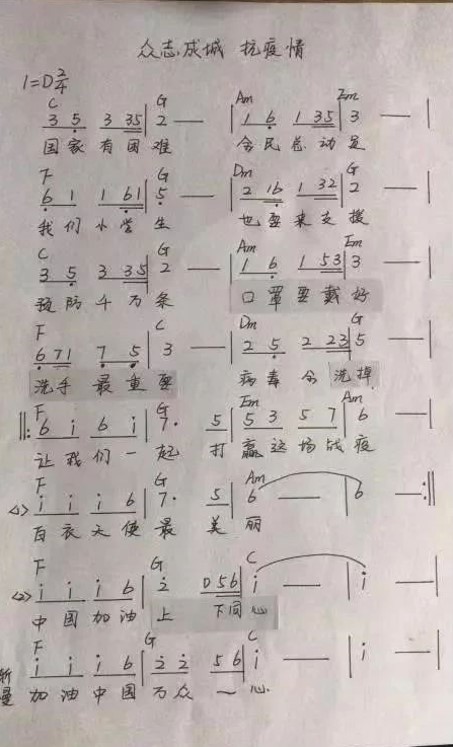 众志成城 抗疫情
1=D 2/4
C G Am Em
3 5 3 35 | 2 — | 1 6 1 35 | 3 — |
国家有困难 全民总动员
F G Dm G
6 1 1 61 | 5 — | 2 16 1 32 | 2 — |
我们小学生 也要来支援
C G Am Em
3 5 3 35 | 2 — | 1 6 1 53 | 3 — |
预防千万条 口罩要戴好
F C Dm G
6 71 7 5 | 3 — | 2 5 2 23 | 5 — |
洗手最重要 病毒全洗掉
F G Em Am
‖: 6 i 6 i | 7· 5 | 5 3 5 7 | 6 — |
让我们一起 打赢这场战疫
F G Am
<1> i i i 6 | 7· 5 | 6 — | 6 — :‖
白衣天使最美丽
F G C
<2> i i i 6 | 2 0 56 | i — | i — |
中国加油上下同心
F G C
渐慢 i i i 6 | 2 2 56 | i — | i —
加油中国万众一心